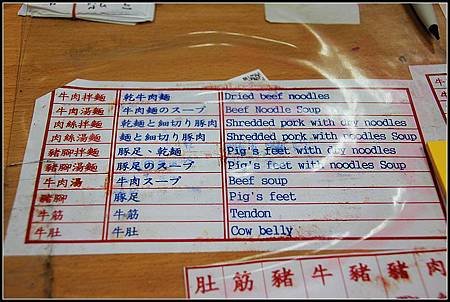 牛肉拌麵 乾牛肉麵 Dried beef noodles
牛肉湯麵 牛肉麵のスープ Beef Noodle Soup
肉絲拌麵 乾麵と細切り豚肉 Shredded pork with dry noodles
肉絲湯麵 麵と細切り豚肉 Shredded pork with noodles Soup
豬腳拌麵 豚足、乾麵 Pig's feet with dry noodles
豬腳湯麵 豚足のスープ Pig's feet with noodles Soup
牛肉湯 牛肉スープ Beef soup
豬腳 豚足 Pig's feet
牛筋 牛筋 Tendon
牛肚 牛肚 Cow belly
肚 筋 豬 牛 豬 豬 肉